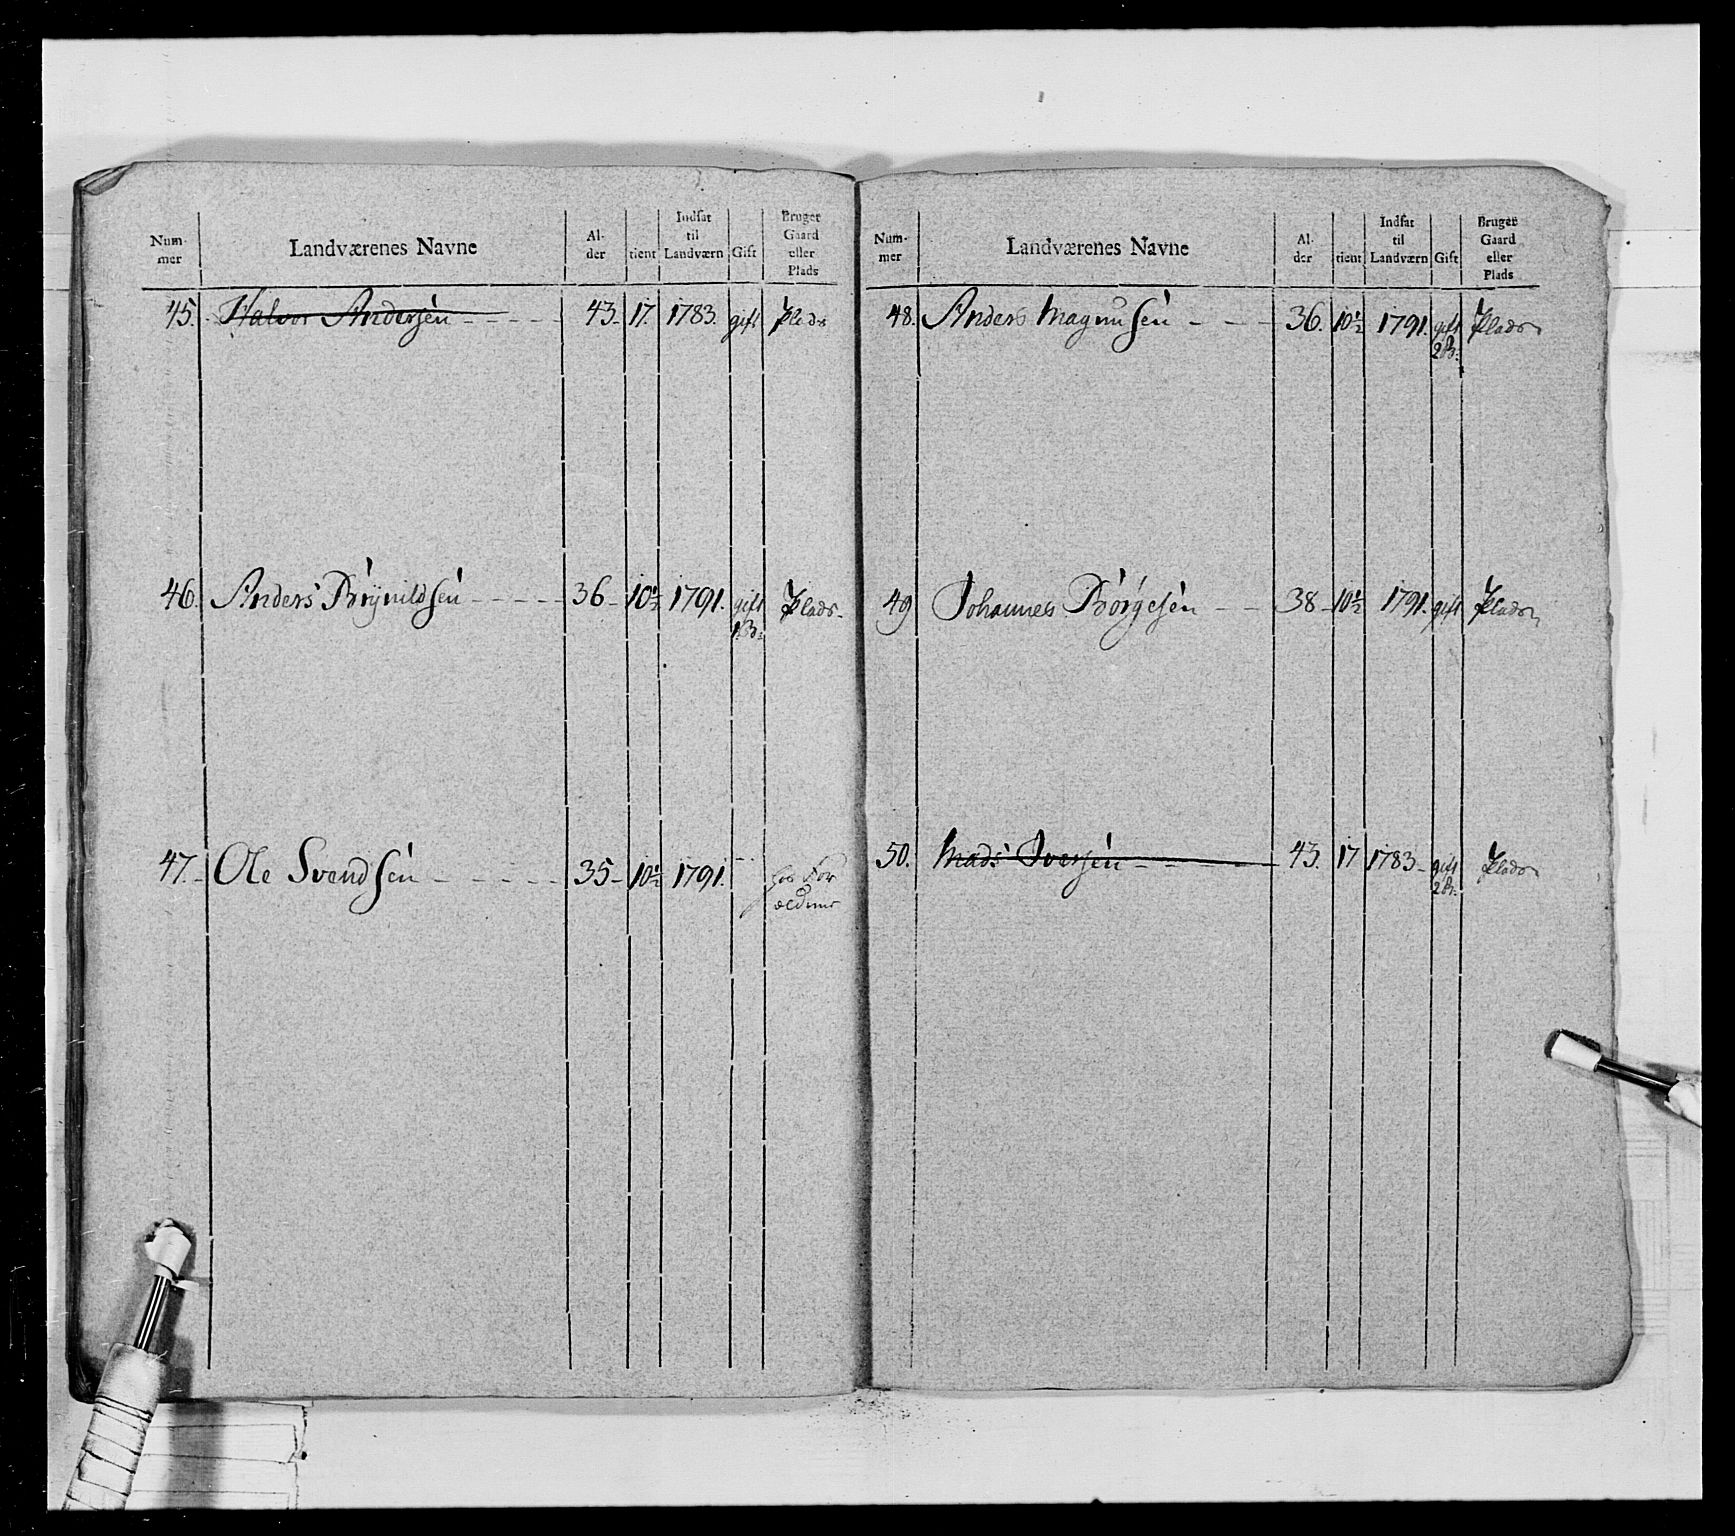 Num- mer | Landværenes Navne | Al- der | tient | Indsat til Landværn | Gift | Bruger Gaard eller Plads
45. Halvor Andersen - - - - - 43. 17. 1783. gift Plads
46. Anders Brynildsen - - - - - 36 - 10½ 1791. gift Plads.
1 B:
47. Ole Svendsen - - - - - 35 - 10½ 1791. - - hos For
ældrene
Num- mer | Landværenes Navne | Al- der | tient | Indsat til Landværn | Gift | Bruger Gaard eller Plads
48. Anders Magnusen - - - 36. 10½ 1791. gift Plads
2 B:
49 Johannes Börgesen - - 38 - 10½ 1791. gift Plads
50. Mads Iversen - - 43. 17 1783 - gift Plads
2 B: